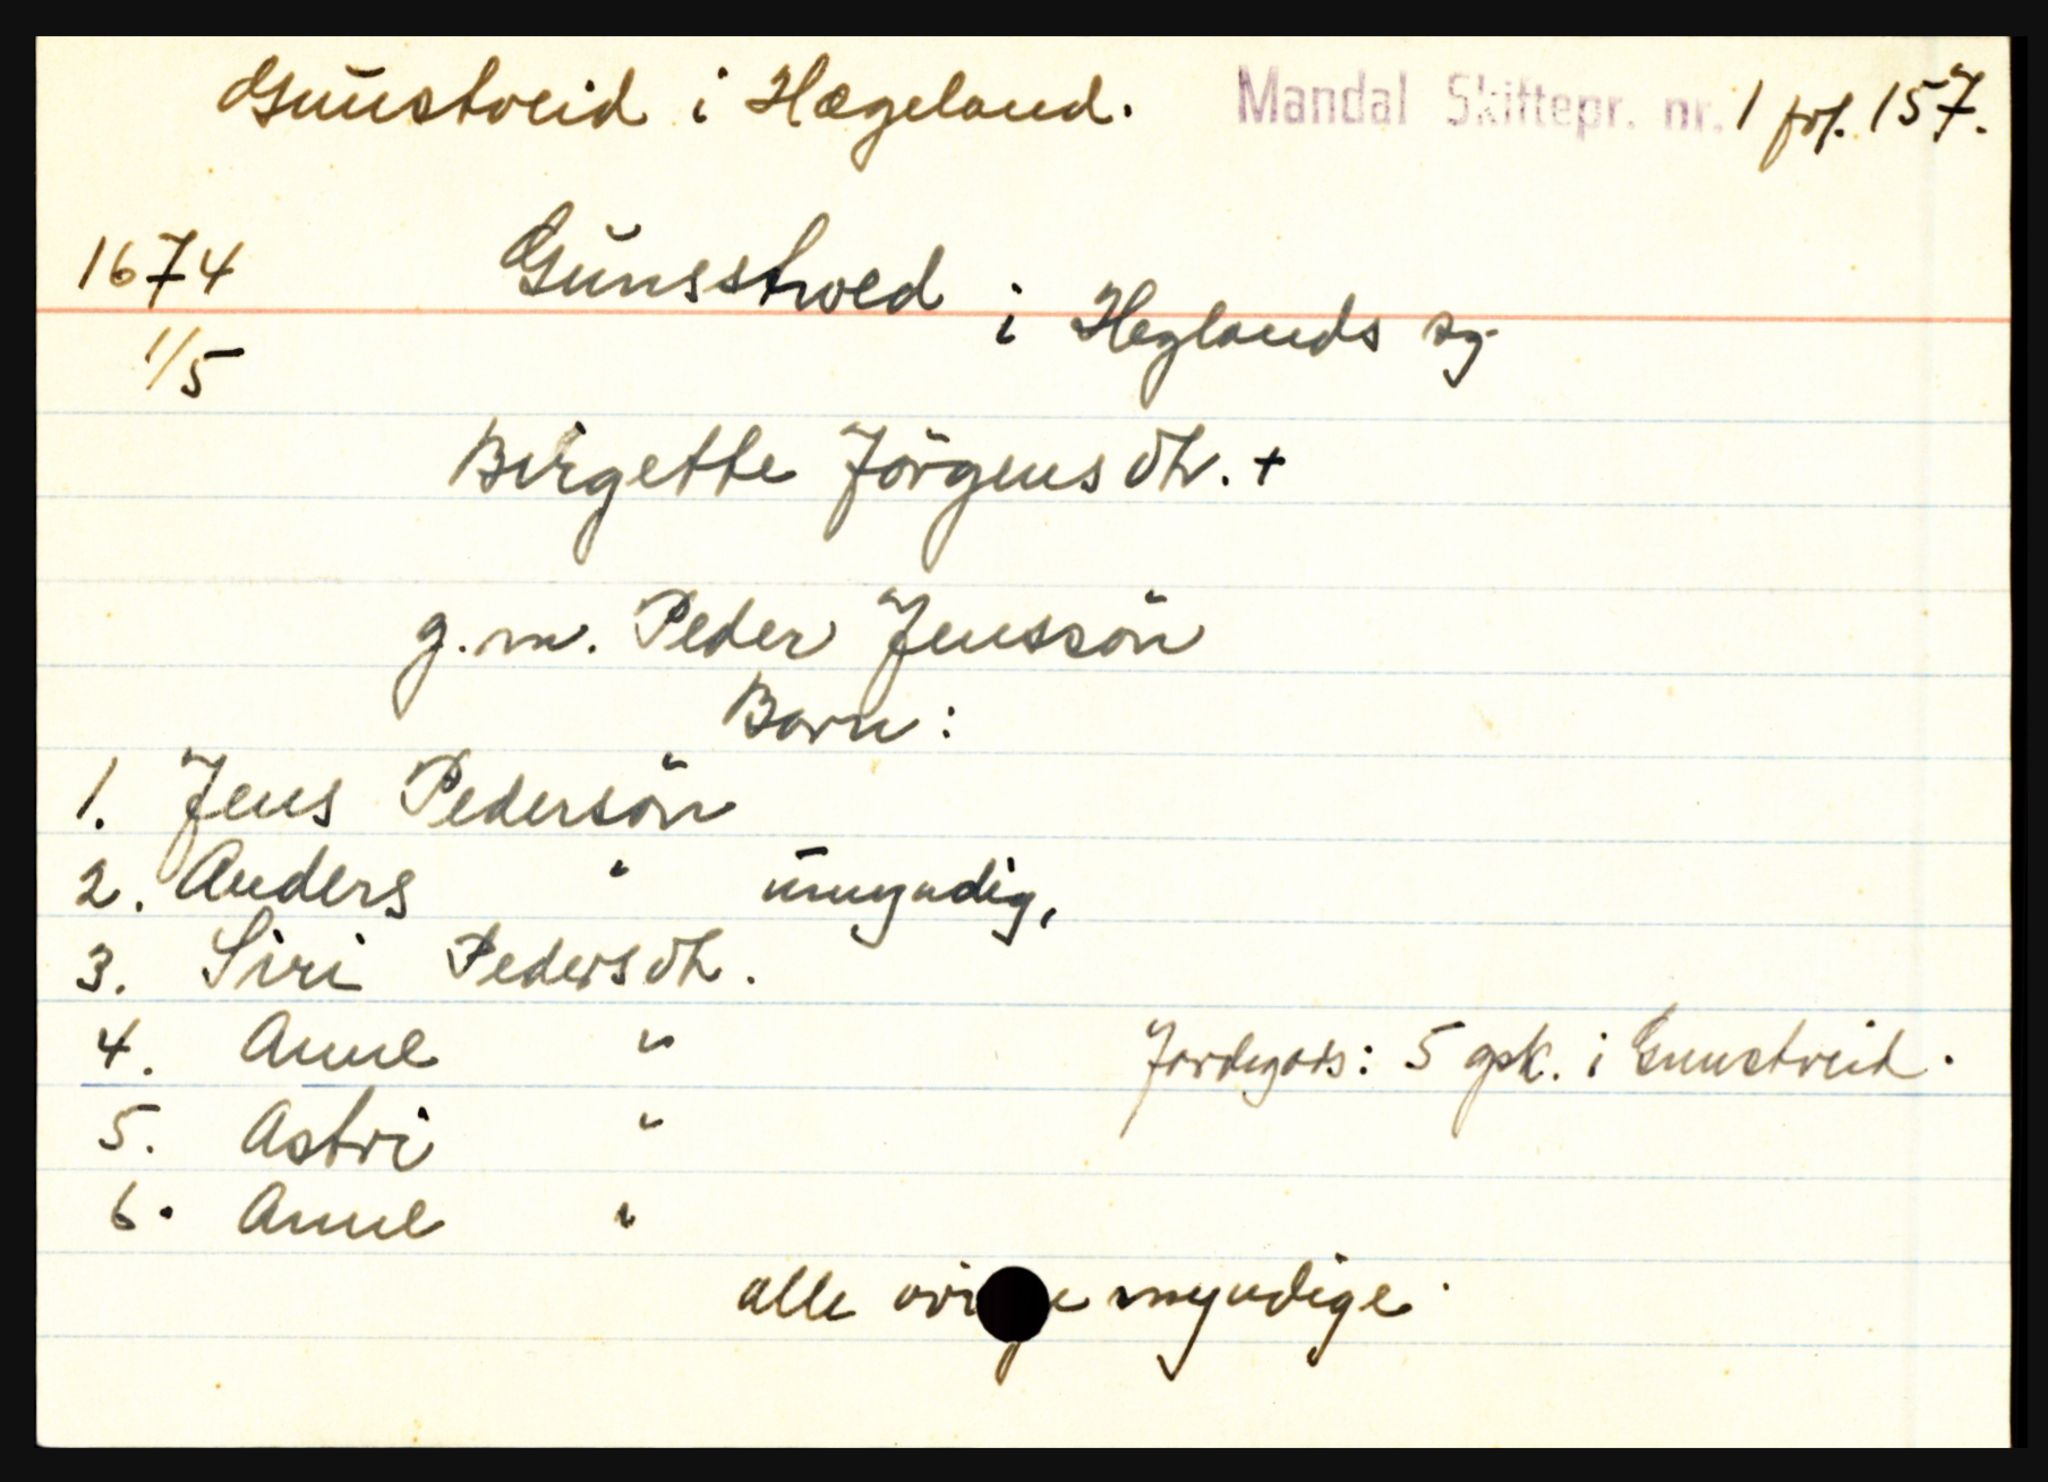 Gunstveid i Hægeland. Mandal Skiftepr. nr. 1 fol. 157.
1674 Gunsstved i Heglands sg
1/5
Birgette Jörgensdtr. +
g.m. Peder Jenssön
Born:
1. Jens Pedersön
2. Anders " umyndig,
3. Siri Pedersdtr.
4. Anne " Jordegods: 5 gsk. i Gunstveid.
5. Astri "
6. Anne "
alle myndige.